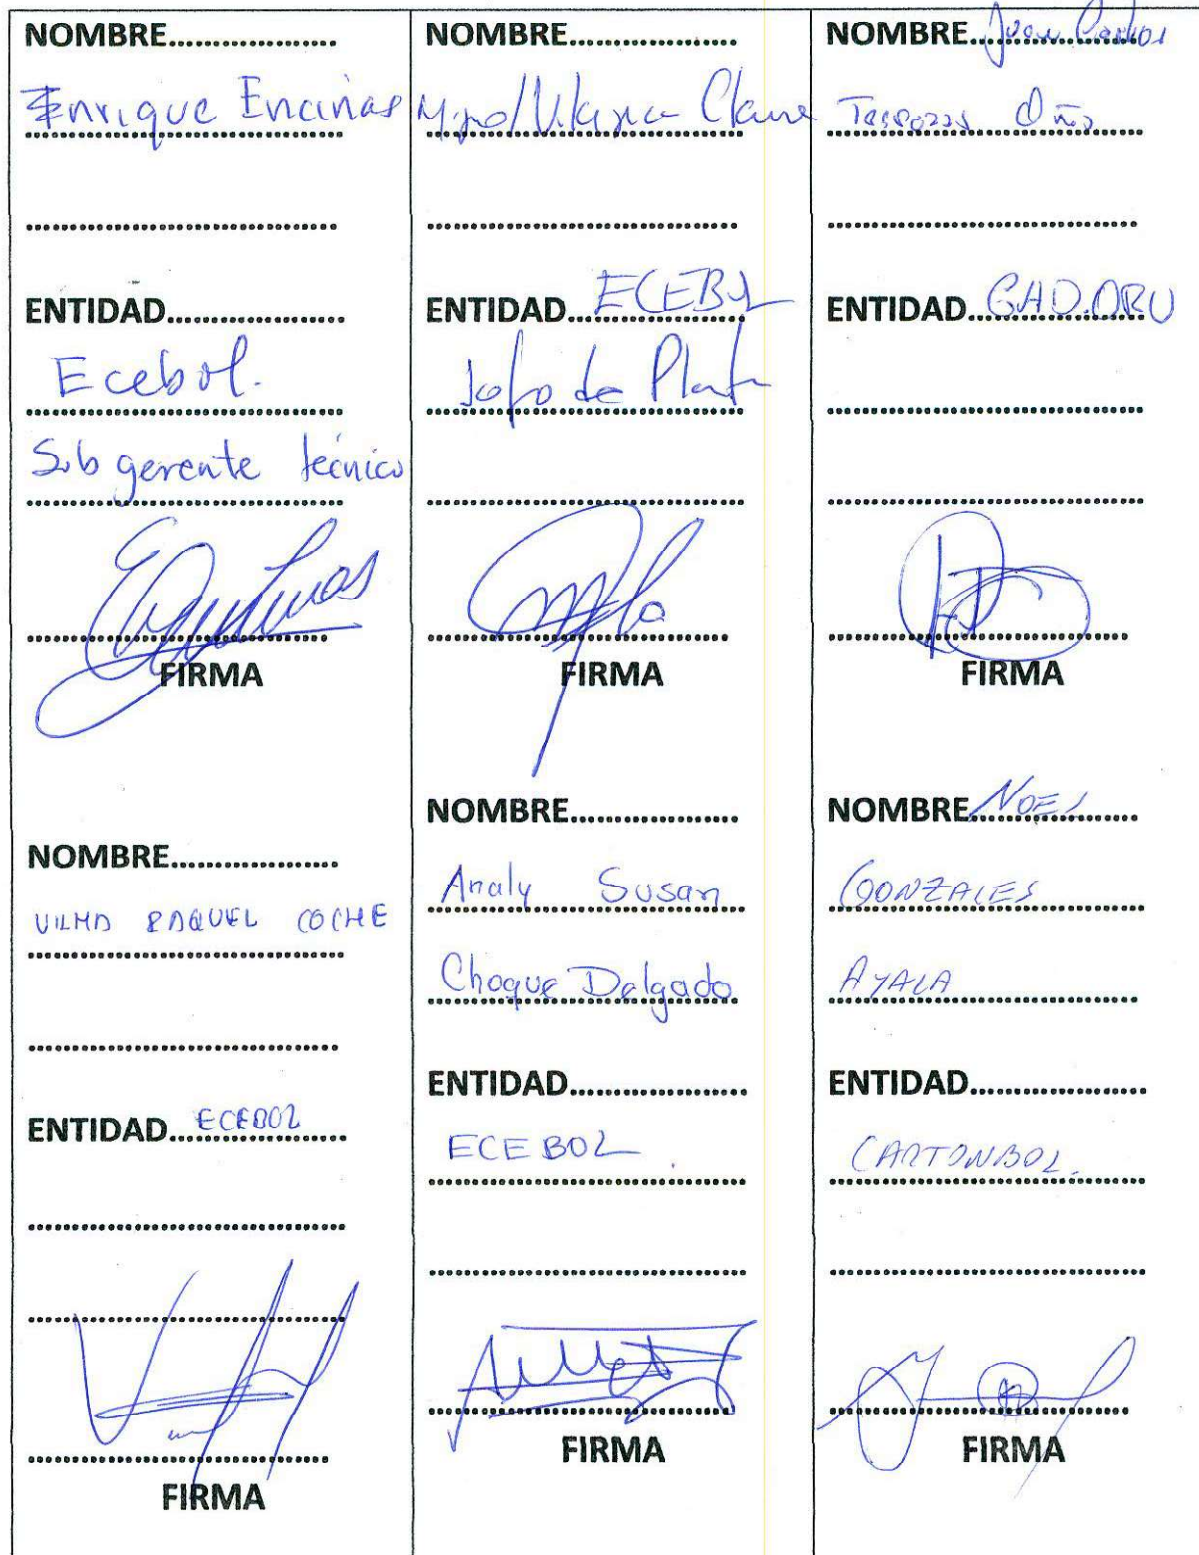 NOMBRE..................
Enrique Encinas
ENTIDAD...................
Ecebol.
Sub gerente técnico
FIRMA
NOMBRE..................
VILMA RAQUEL COCHE
ENTIDAD...ECEBOL
FIRMA
NOMBRE..................
ENTIDAD...ECEBOL
de Planta
FIRMA
NOMBRE..................
Analy Susan
Choque Delgado
ENTIDAD...................
ECEBOL
FIRMA
NOMBRE...Juan Carlos
ENTIDAD...GAD.ORU
FIRMA
NOMBRE...NOEL
GONZALES
AYALA
ENTIDAD...................
CARTONBOL.
FIRMA